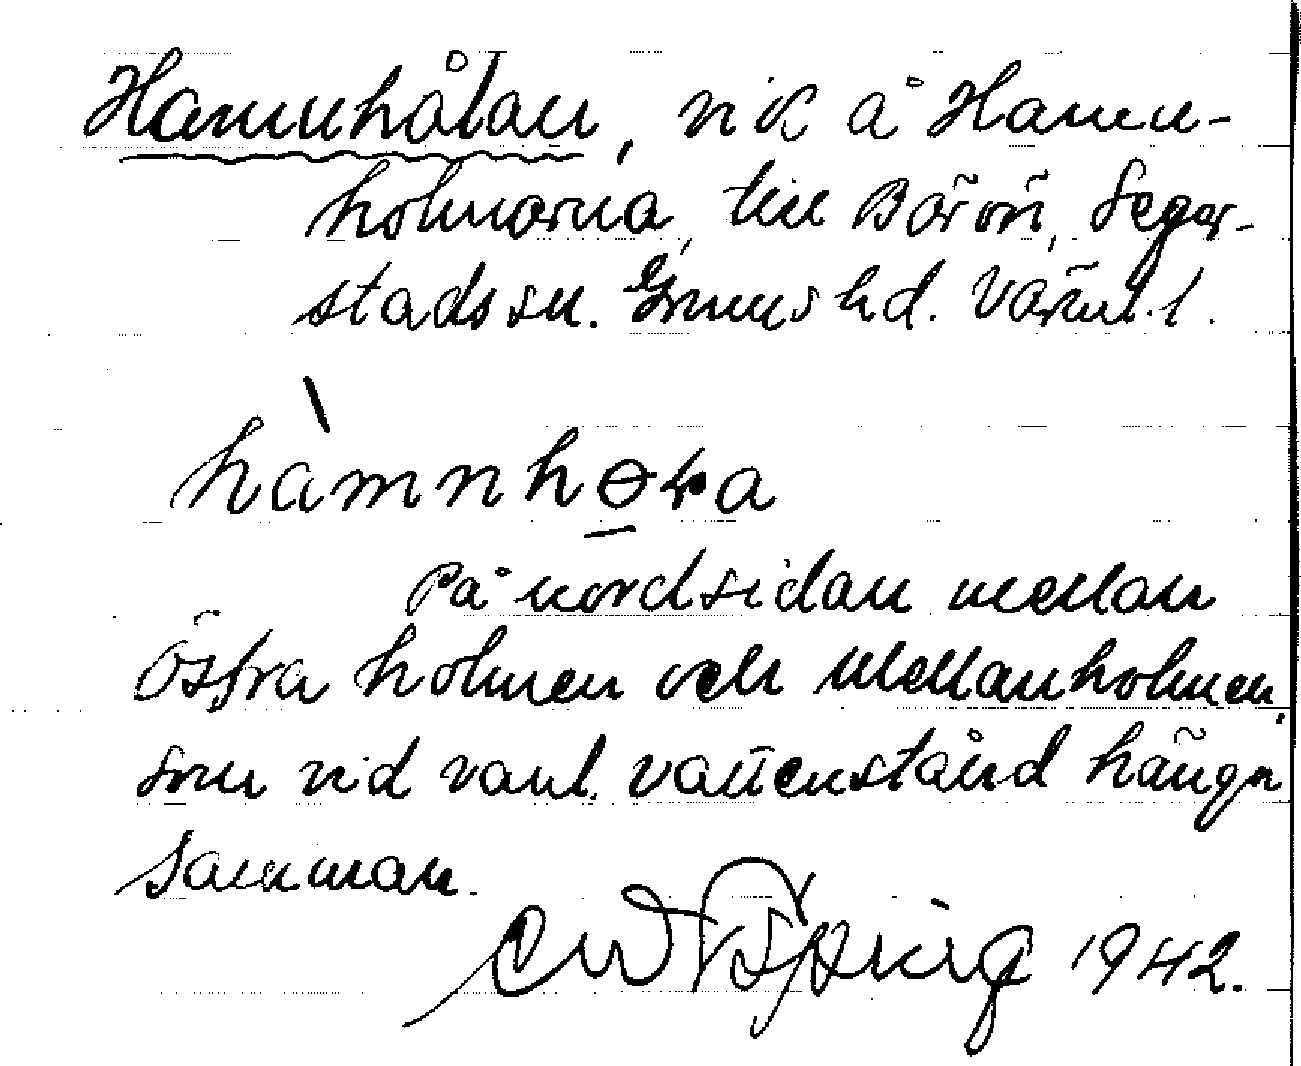 Hamnhålan, vik å Hamn-
holmarna, till Börön, Seger-
stads sn. Grums hd. Värml. l.
hàmnhɵɽa
På nordsidan mellan
Östra holmen och Mellanholmen,
som vid vanl. vattenstånd hänga
samman.
1942.